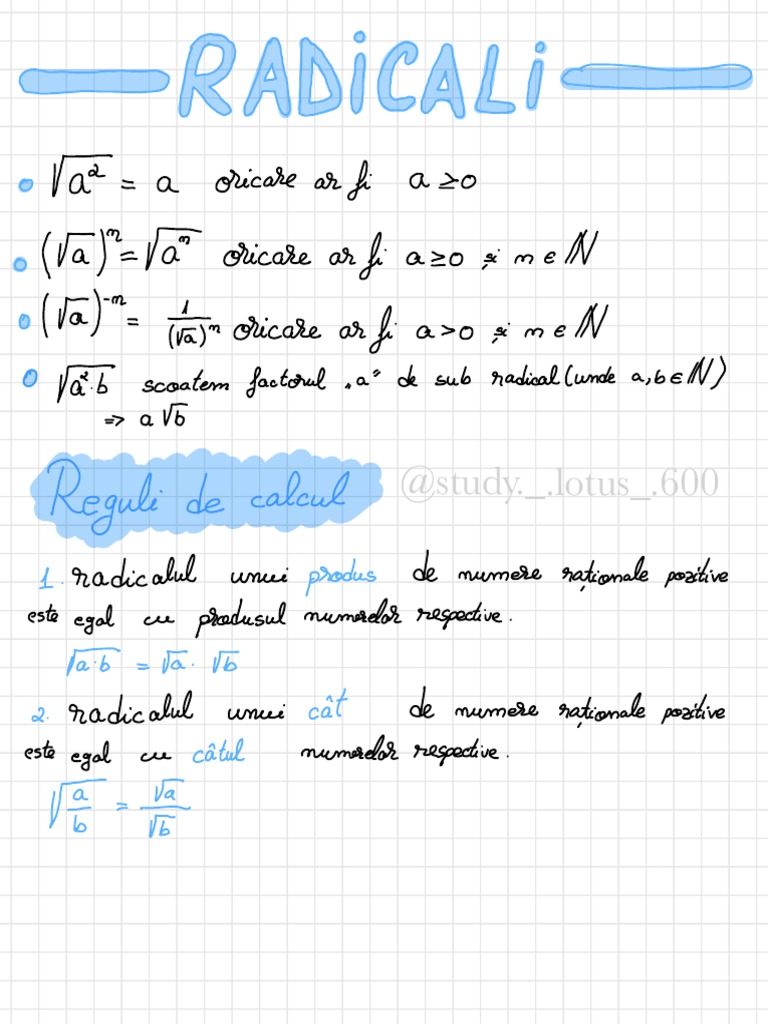 RADiCALi
√a² = a oricare ar fi a ≥ 0
(√a)ⁿ = √aⁿ oricare ar fi a ≥ 0 și n ∈ ℕ
(√a)⁻ⁿ = 1/(√a)ⁿ oricare ar fi a > 0 și n ∈ ℕ
√a²·b scoatem factorul „a" de sub radical (unde a, b ∈ ℕ)
=> a√b
Reguli de calcul
@study._.lotus_.600
1. radicalul unui produs de numere raționale pozitive
este egal cu produsul numerelor respective.
√a·b = √a · √b
2. radicalul unui cât de numere raționale pozitive
este egal cu câtul numerelor respective.
√a/b = √a/√b